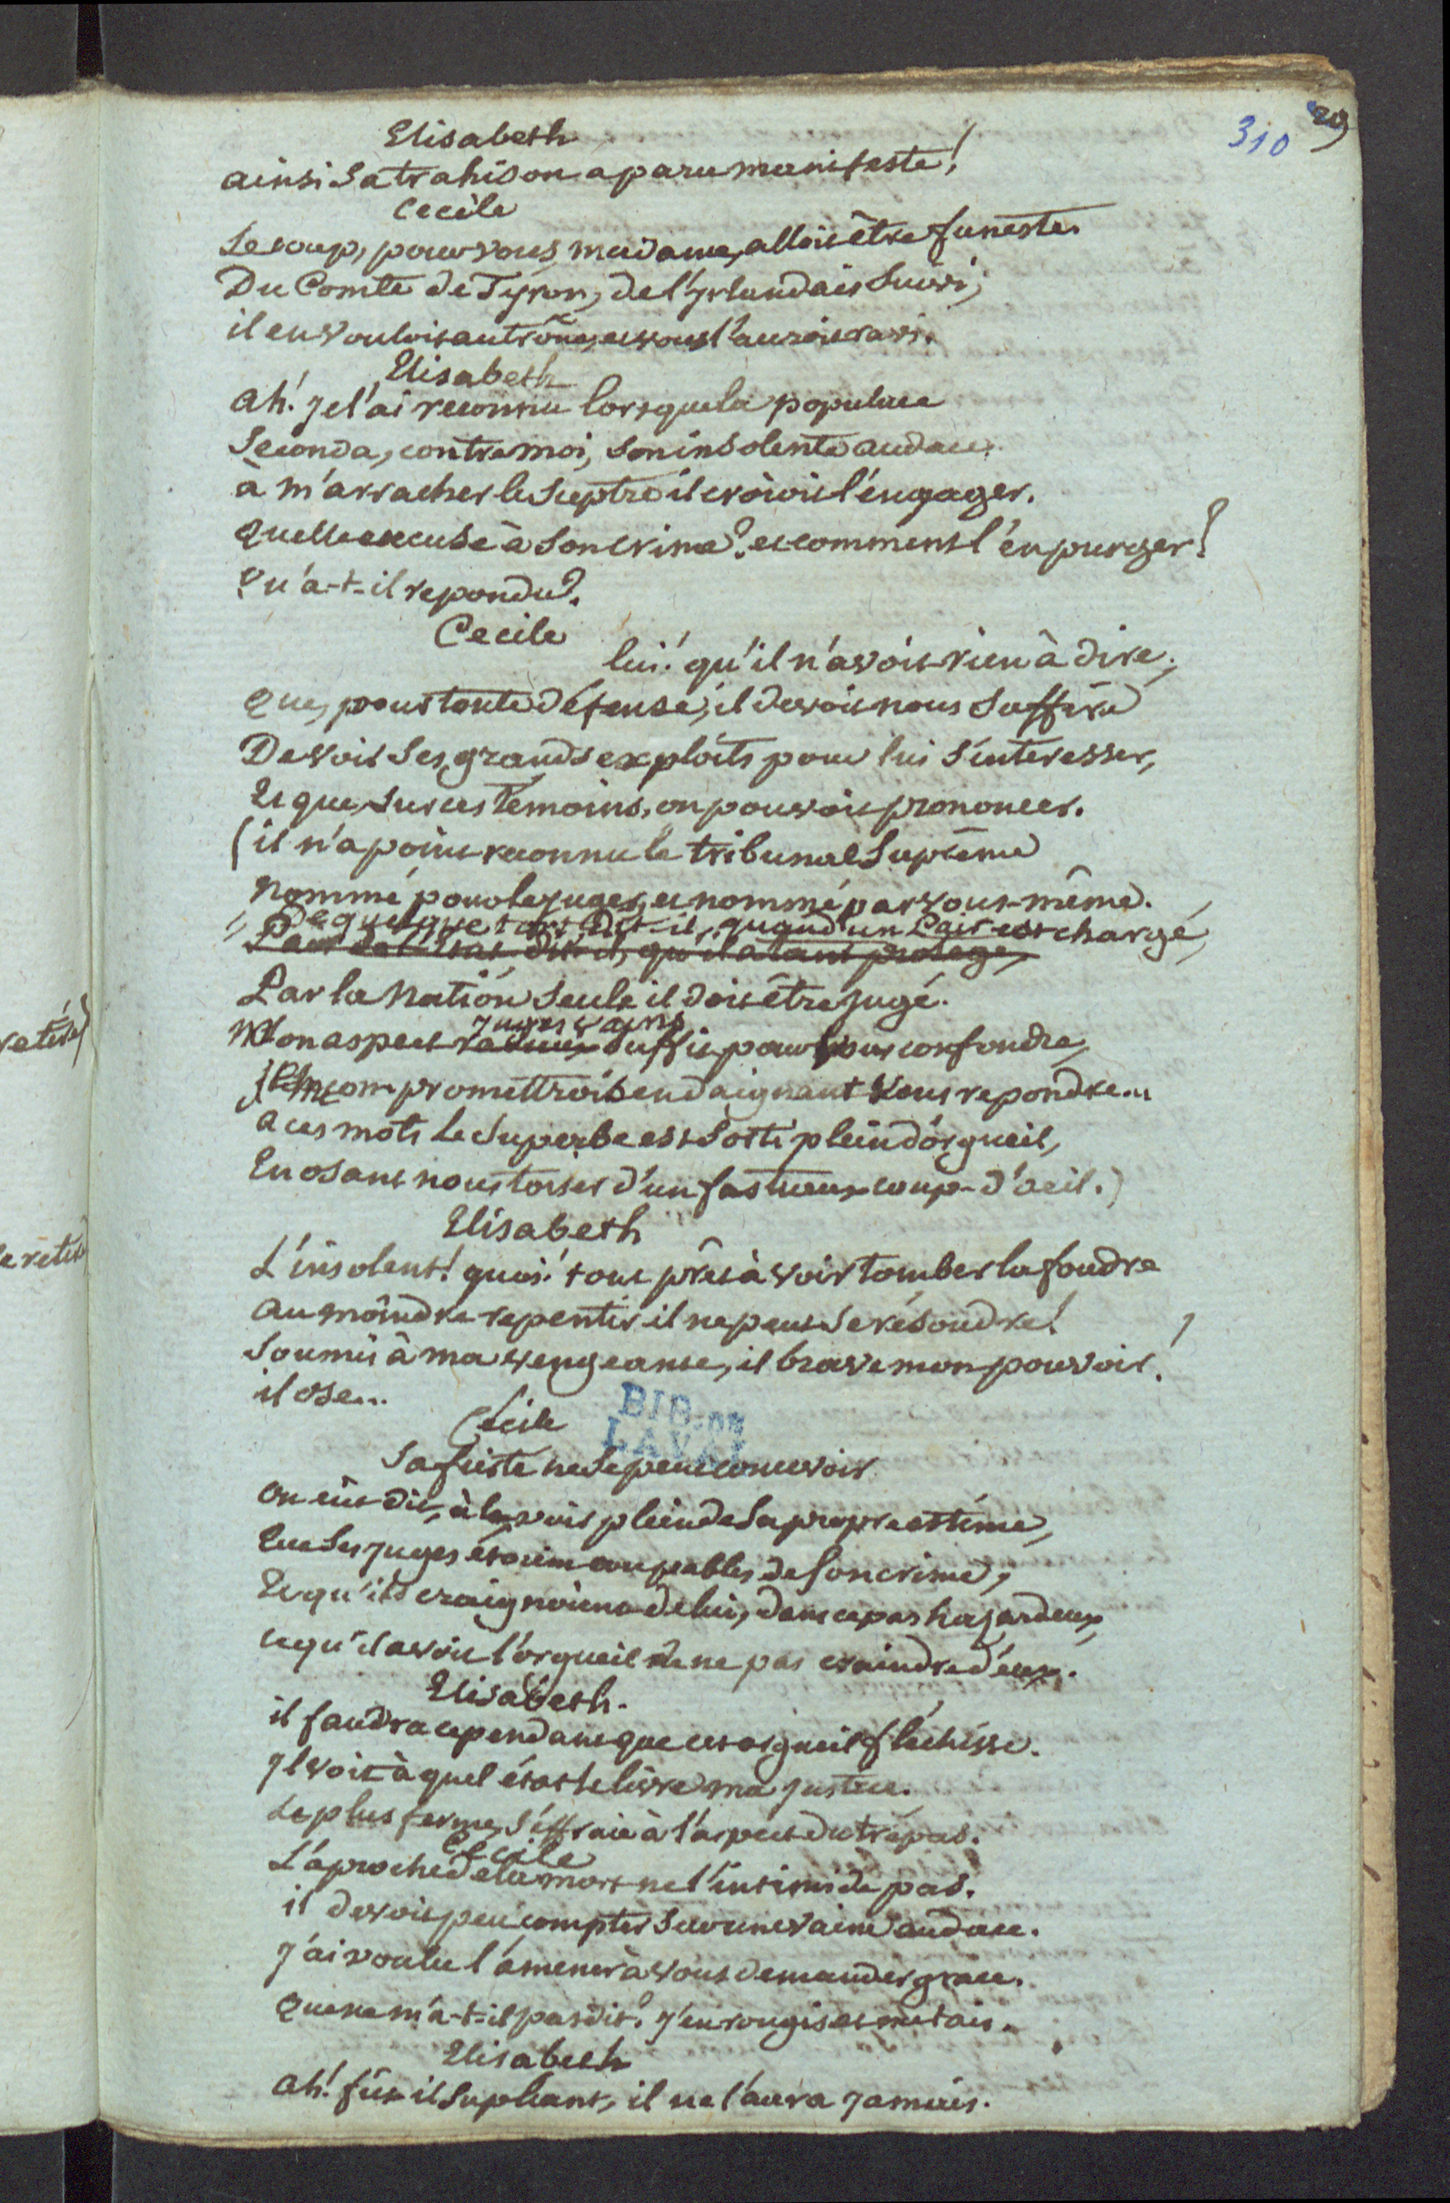 310 29
Elisabeth
ainsi Sa trahison a paru manifeste!
Cecile
Le coup, pour vous, madame, alloit être funeste.
Du Comte de Tyron, de l'Yrlandais Suivi,
il en vouloit au trône, et vous l'auroit ravi.
Elisabeth
Ah! je l'ai reconnu lorsque la populace
Seconda, contre moi, Son insolente audace.
à m'arracher le Sceptre il croioit l'engager.
Quelle excuse à Son crime? et comment l'en purger?
Qu'a-t-il repondu?
Cecile
lui! qu'il n'avoit rien à dire;
Que, pour toute défense, il devoit nous Suffire
De voir Ses grands exploits pour lui S'interesser,
Et que, Sur ces temoins, on pouvoit prononcer.
(il n'a point reconnu le tribunal Suprême
Nommé pour le juger, et nommé par vous-même.
De quelque tort, dit-il, quand un Pair est chargé,
Pair de l'état, dit-il, qu'il a tant protegé,
Par la Nation Seule il doit être jugé.
juges vains
Mon aspect Suffit pour vous confondre,
je me compromettrois en daignant vous repondre...
a ces mots le Superbe est Sorti plein d'orgueil,
En osant nous toiser d'un fastueux coup-d'oeil.)
Elisabeth
L'insolent! quoi! tout prêt à voir tomber la foudre
au moindre repentir il ne peut Se résoudre!
Soumis à ma vengeance, il brave mon pouvoir!
il ose...
Cecile
Sa fierté ne Se peut concevoir
On eût dit, à le voir plein de Sa propre estime,
Que Ses juges étoient coupables de Son crime,
Et qu'ils craignoient de lui, dans ce pas hazardeux,
ce qu'il avoit l'orgueil de ne pas craindre d'eux.
Elisabeth.
il faudra cependant que cet orgueil fléchisse.
Il voit à quel état le livre ma justice.
Le plus ferme S'éffraie à l'aspect du trépas.
Cecile
L'aproche de la mort ne l'intimide pas.
il devoit peu compter Sur une vaine audace.
J'ai voulu l'amener à vous demander grace.
Que ne m'a-t-il pas dit? J'en rougis et me tais.
Elisabeth
Ah! fût-il Supliant, il ne l'aura jamais.
BIB. DE
LAVAL